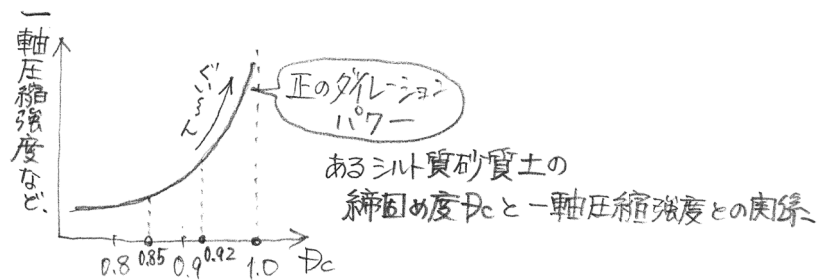 一軸圧縮強度など、
ぐい〜ん
正のダイレーション
パワー
あるシルト質砂質土の
締固め度Dcと一軸圧縮強度との関係、
0.8 0.85 0.9 0.92 1.0 Dc